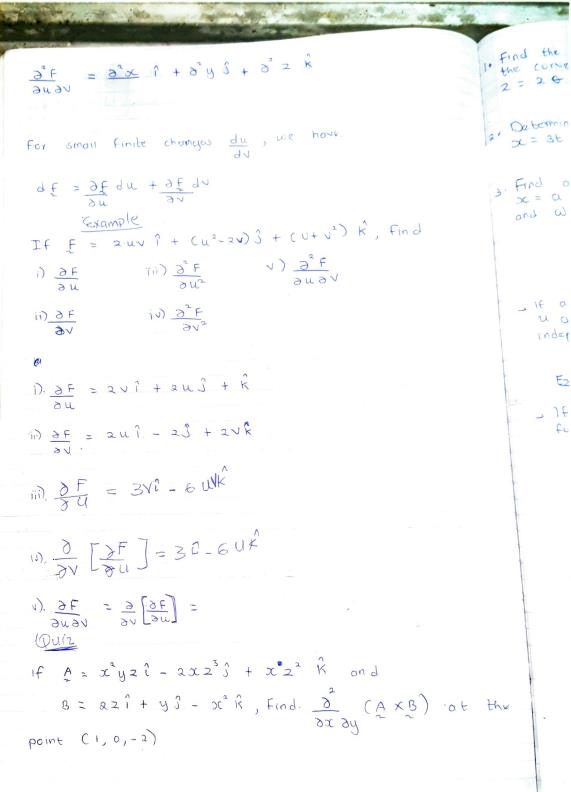 ∂²F/∂u∂v = ∂²x î + ∂²y ĵ + ∂² z k̂
For small finite changes du/dv, we have
dF = ∂F/∂u du + ∂F/∂v dv
Example
If F = 2uv î + (u²-2v) ĵ + (u+v²) k̂, Find
i) ∂F/∂u iii) ∂²F/∂u² v) ∂²F/∂u∂v
ii) ∂F/∂v iv) ∂²F/∂v²
i). ∂F/∂u = 2vî + 2uĵ + k̂
ii) ∂F/∂v = 2uî - 2ĵ + 2vk̂
iii). ∂F/∂u = 3vî - 6uvk̂
iv). ∂/∂v [∂F/∂u] = 3î - 6uk̂
v). ∂F/∂u∂v = ∂/∂v [∂F/∂u] =
Quiz
If A = x²yzî - 2xz³ĵ + xz² k̂ and
B = 2zî + yĵ - x² k̂, Find. ∂²/∂x∂y (A×B) at the
point (1, 0, -2)
1. Find the
the curve
z = 2
2. Determin
x = 3t
3. Find
x = a
and
- If a
u a
indep
Ez
- If
fu